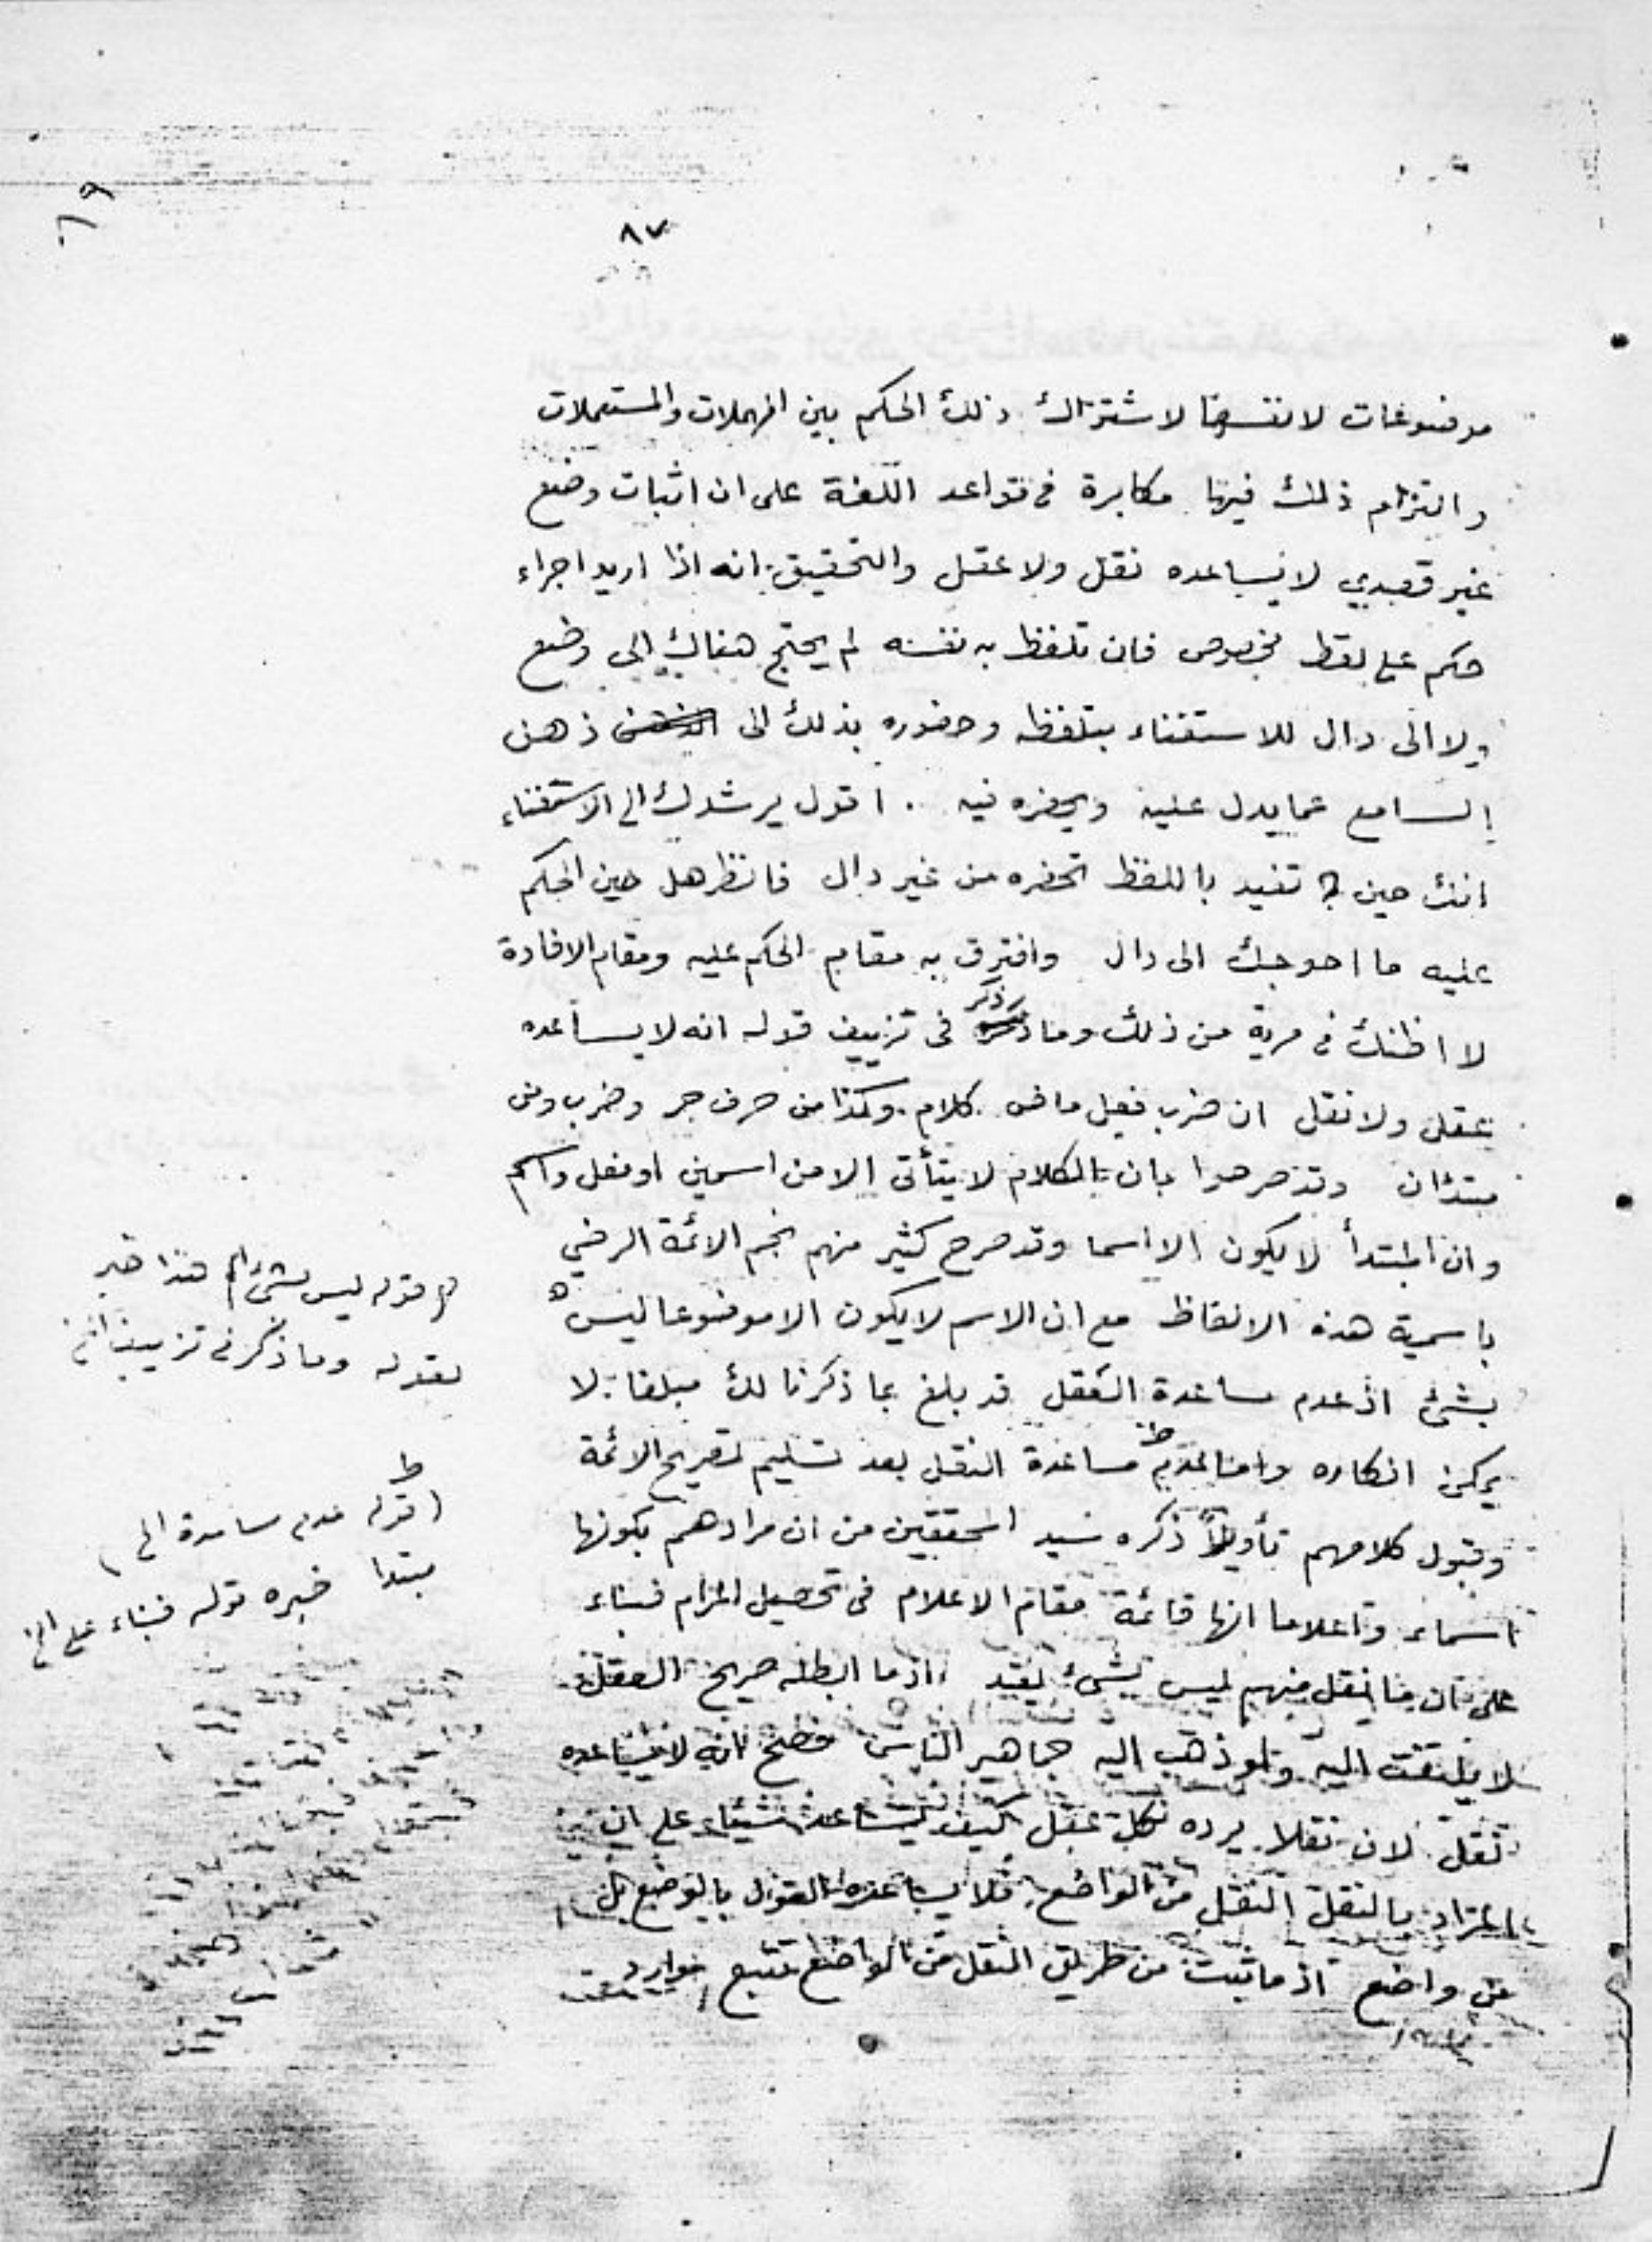 ٨٧
موضوعات لانفسها لاشتراك ذلك الحكم بين المهملات والمستعملات
والتزام ذلك فيها مكابرة في قواعد اللغة على ان اثبات وضع
غير قصدي لا يساعده نقل ولا عقل والتحقيق انه اذا اريد اجراء
حكم على لفظ مخصوص فان تلفظ به نفسه لم يحتج هناك الى وضع
ولا الى دال للاستغناء بتلفظه وحضوره بذلك الى ذهن
السامع عما يدل عليه ويحضره فيه . اقول يرشدك الى الاستغناء
انك حين تفيد باللفظ تحضره من غير دال فانظر هل حين الحكم
عليه ما احوجك الى دال وافترق به مقام الحكم عليه ومقام الافادة
لا اظنك في مرية من ذلك وما ذكر في تزييف قوله انه لا يساعده
عقل ولا نقل ان ضرب فعل ماض كلام وكذا من حرف جر وضرب ومن
مبتدئان وقد صرحوا بان الكلام لا يتأتى الا من اسمين او فعل واسم
وان المبتدأ لا يكون الا اسما وقد صرح كثير منهم نجم الائمة الرضي
باسمية هذه الالفاظ مع ان الاسم لا يكون الا موضوعا ليس
بشئ اذ عدم مساعدة العقل قد بلغ بما ذكرنا لك مبلغا لا
يمكن انكاره واما عدم مساعدة النقل بعد تسليم تصريح الائمة
وقبول كلامهم تأويلاً ذكره سيد المحققين من ان مرادهم بكونها
اسماء واعلاما انها قائمة مقام الاعلام في تحصيل المرام فبناء
على ان ما نقل منهم ليس بشئ يفيد اذ ما ابطله صريح العقل
لا يلتفت اليه ولو ذهب اليه جماهير الناس فصح انه لا يساعده
نقل لان نقلا يرده كل عقل كيف يساعد شيئا على ان
المراد بالنقل النقل من الواضع فلا يساعده القول بالوضع
من واضع اذ ما ثبت من طريق النقل من الواضع تتبع موارد
قوله ليس بشئ الخ هذا خبر
لقوله وما ذكر في تزييف الخ
قوله عدم مساعدة الخ
مبتدا خبره قوله فبناء على الخ